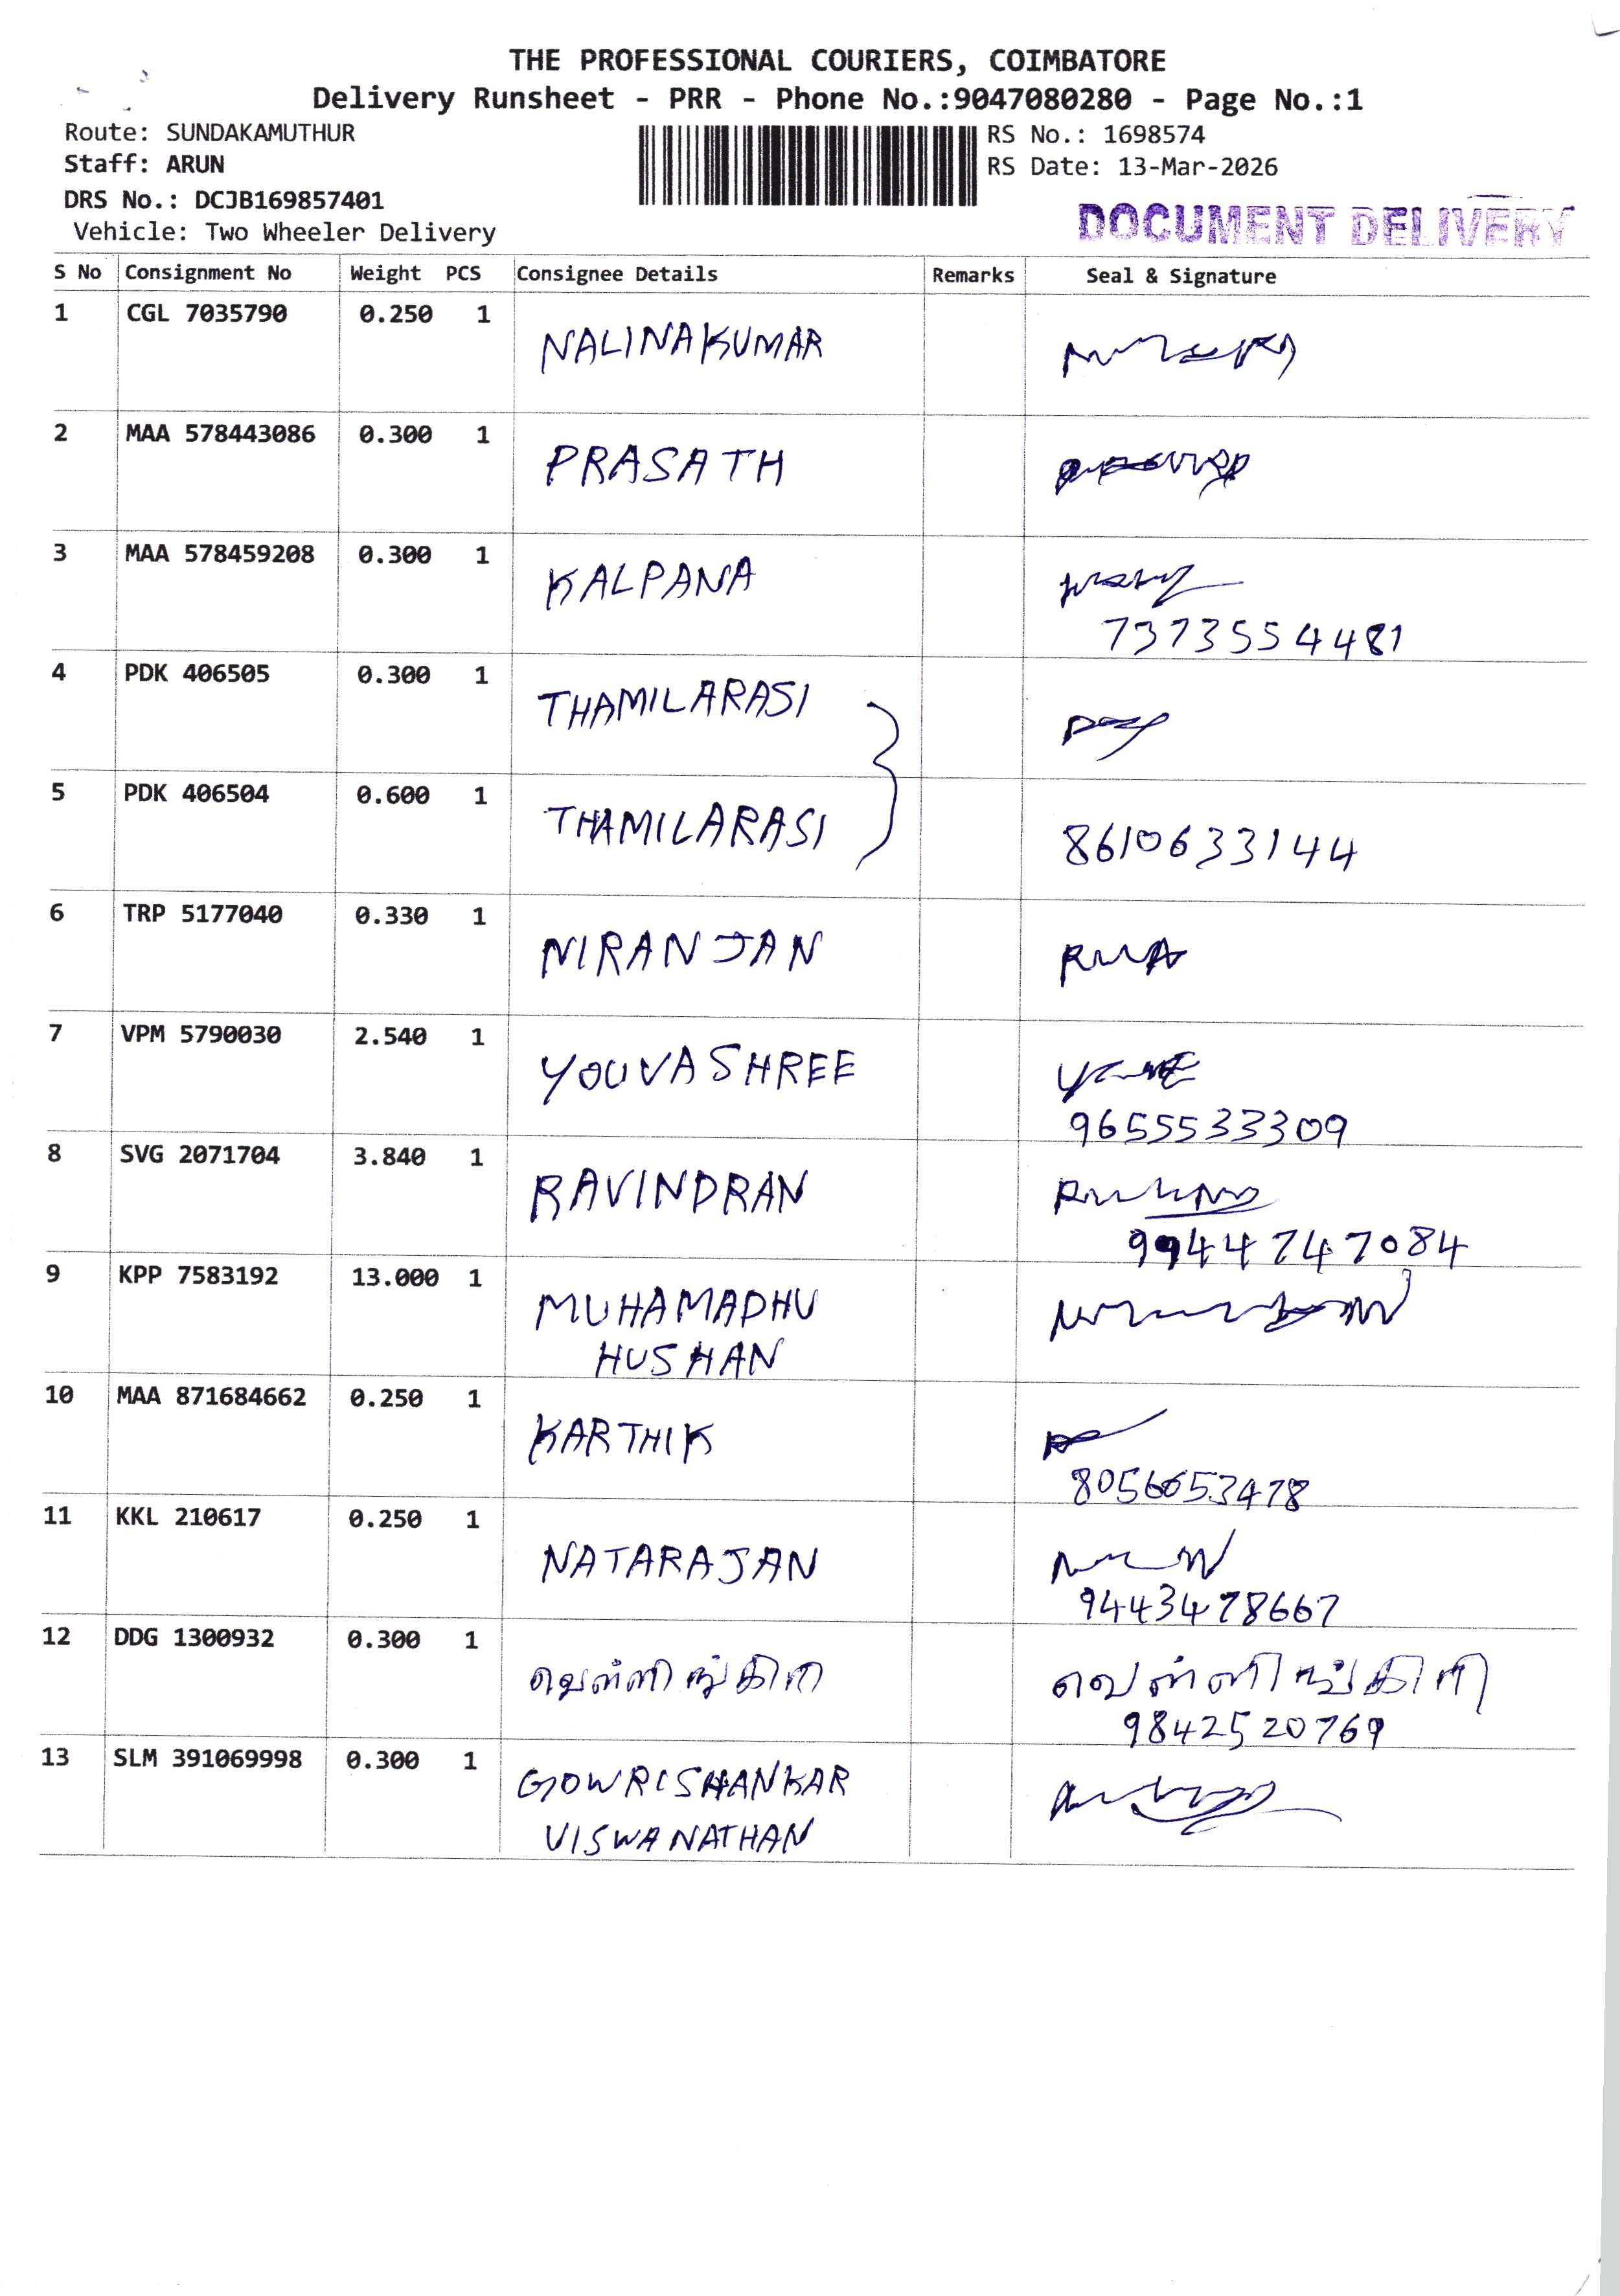 THE PROFESSIONAL COURIERS, COIMBATORE
Delivery Runsheet - PRR - Phone No.:9047080280 - Page No.:1
Route: SUNDAKAMUTHUR
RS No.: 1698574
Staff: ARUN
RS Date: 13-Mar-2026
DRS No.: DCJB169857401
Vehicle: Two Wheeler Delivery
DOCUMENT DELIVERY
S No Consignment No Weight PCS Consignee Details Remarks Seal & Signature
1 CGL 7035790 0.250 1 NALINAKUMAR
2 MAA 578443086 0.300 1 PRASATH
3 MAA 578459208 0.300 1 KALPANA
7373554481
4 PDK 406505 0.300 1 THAMILARASI
5 PDK 406504 0.600 1 THAMILARASI
8610633144
6 TRP 5177040 0.330 1 NIRANJAN
7 VPM 5790030 2.540 1 YOUVASHREE
9655533309
8 SVG 2071704 3.840 1 RAVINDRAN
9944747084
9 KPP 7583192 13.000 1 MUHAMADHU
HUSHAN
10 MAA 871684662 0.250 1 KARTHIK
8056653478
11 KKL 210617 0.250 1 NATARAJAN
9443478667
12 DDG 1300932 0.300 1 வெள்ளிங்கிரி வெள்ளிங்கிரி
9842520769
13 SLM 391069998 0.300 1 GOWRISHANKAR
VISWANATHAN